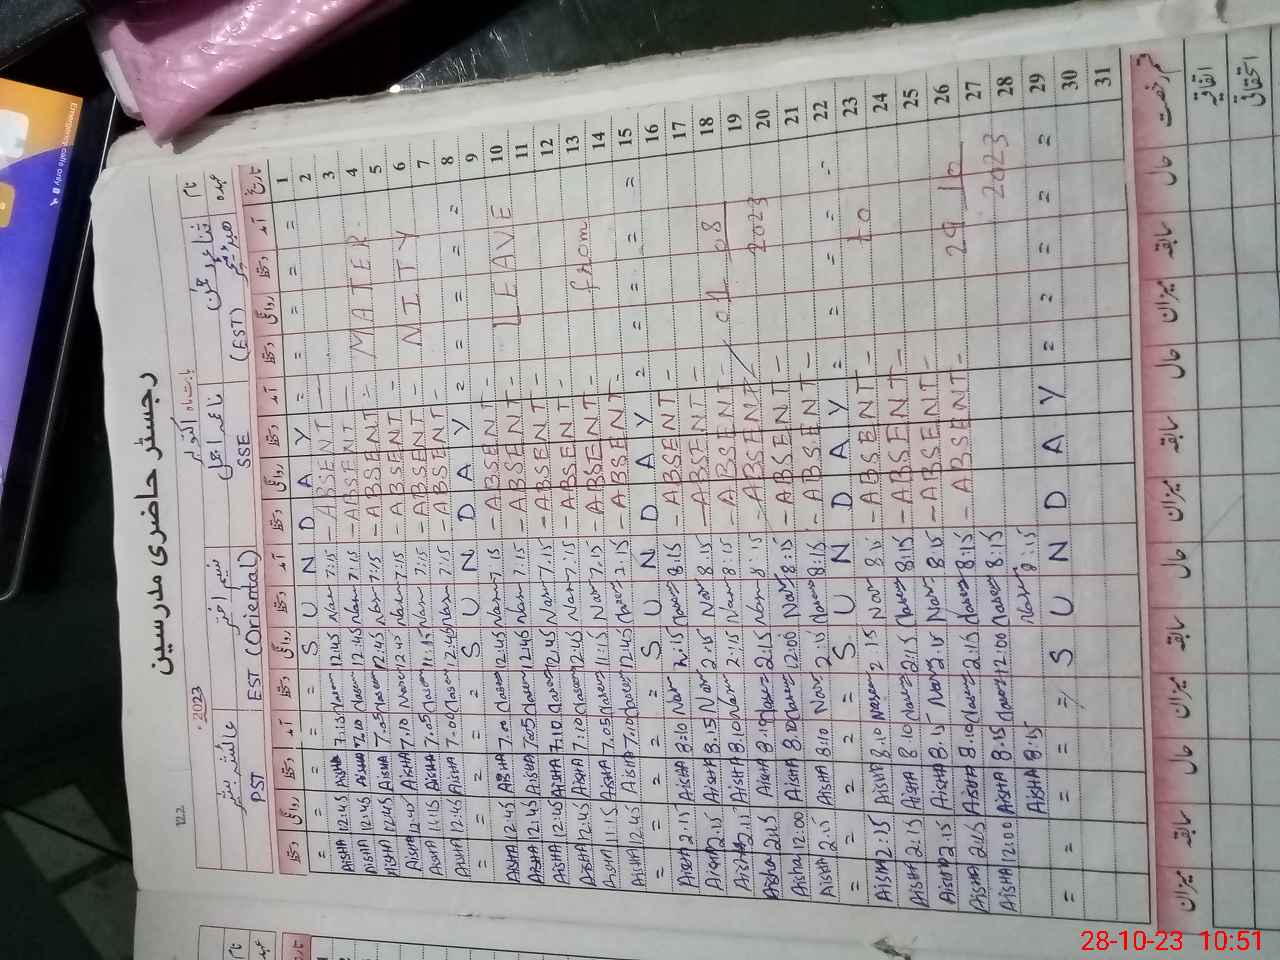 رجسٹر حاضری مدرسین
122
2023 بابت ماہ اکتوبر
نام
عہدہ (EST) SSE EST (Oriental) PST
تاریخ آمد دستخط روانگی دستخط آمد دستخط روانگی دستخط آمد دستخط روانگی دستخط آمد دستخط روانگی دستخط
= = S U N D A Y = = 1
AISHA 12:45 AISHA 7:15 12:45 7:15 - ABSENT - 2
AISHA 12:45 AISHA 7:10 12:45 7:15 - ABSENT - 3
AISHA 12:45 AISHA 7:05 12:45 7:15 - ABSENT - MATER 4
AISHA 12:45 AISHA 7:10 12:45 7:15 - ABSENT - 5
AISHA 11:15 AISHA 7:05 11:15 7:15 - ABSENT - NITY 6
AISHA 12:45 AISHA 7:00 12:45 7:15 - ABSENT - 7
= = S U N D A Y = = 8
AISHA 12:45 AISHA 7:00 12:45 7:15 - ABSENT - 9
AISHA 12:45 AISHA 7:05 12:45 7:15 - ABSENT - LEAVE 10
AISHA 12:45 AISHA 7:10 12:45 7:15 - ABSENT - 11
AISHA 12:45 AISHA 7:10 12:45 7:15 - ABSENT - 12
AISHA 11:15 AISHA 7:05 11:15 7:15 - ABSENT - from 13
AISHA 12:45 AISHA 7:10 12:45 7:15 - ABSENT - 14
= = S U N D A Y = = 15
AISHA 2:15 AISHA 8:10 2:15 8:15 - ABSENT - 16
AISHA 2:15 AISHA 8:15 2:15 8:15 - ABSENT - 17
AISHA 2:15 AISHA 8:10 2:15 8:15 - ABSENT - 01 08 18
Aisha 2:15 Aisha 8:10 2:15 8:15 - ABSENT - 2023 19
Aisha 12:00 AISHA 8:10 12:00 8:15 - ABSENT - 20
AISHA 2:15 AISHA 8:10 2:15 8:15 - ABSENT - 21
= = S U N D A Y = = 22
AISHA 2:15 AISHA 8:10 2:15 8:15 - ABSENT - to 23
AISHA 2:15 AISHA 8:10 2:15 8:15 - ABSENT - 24
AISHA 2:15 AISHA 8:15 2:15 8:15 - ABSENT - 25
AISHA 2:15 AISHA 8:10 2:15 8:15 - ABSENT - 29 10 26
AISHA 12:00 AISHA 8:15 12:00 8:15 2023 27
AISHA 8:15 8:15 28
= = S U N D A Y = = 29
30
31
قسم رخصت حال سابقہ میزان حال سابقہ میزان حال سابقہ میزان حال سابقہ میزان
اتفاقیہ
استحقاقی
Emergency calls only
28-10-23 10:51